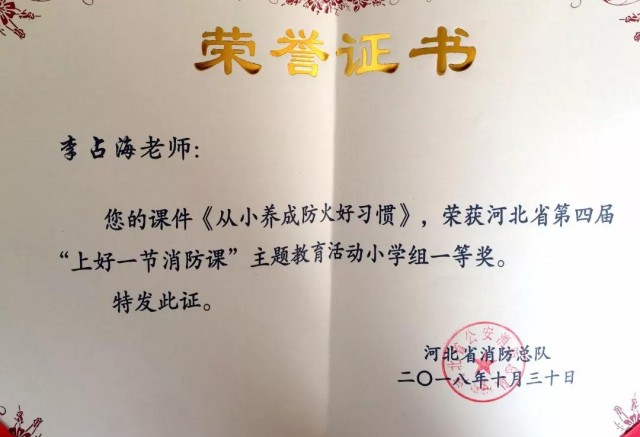 荣誉证书
李占海老师：
您的课件《从小养成防火好习惯》，荣获河北省第四届
“上好一节消防课”主题教育活动小学组一等奖。
特发此证。
河北省消防总队
二〇一八年十月三十日